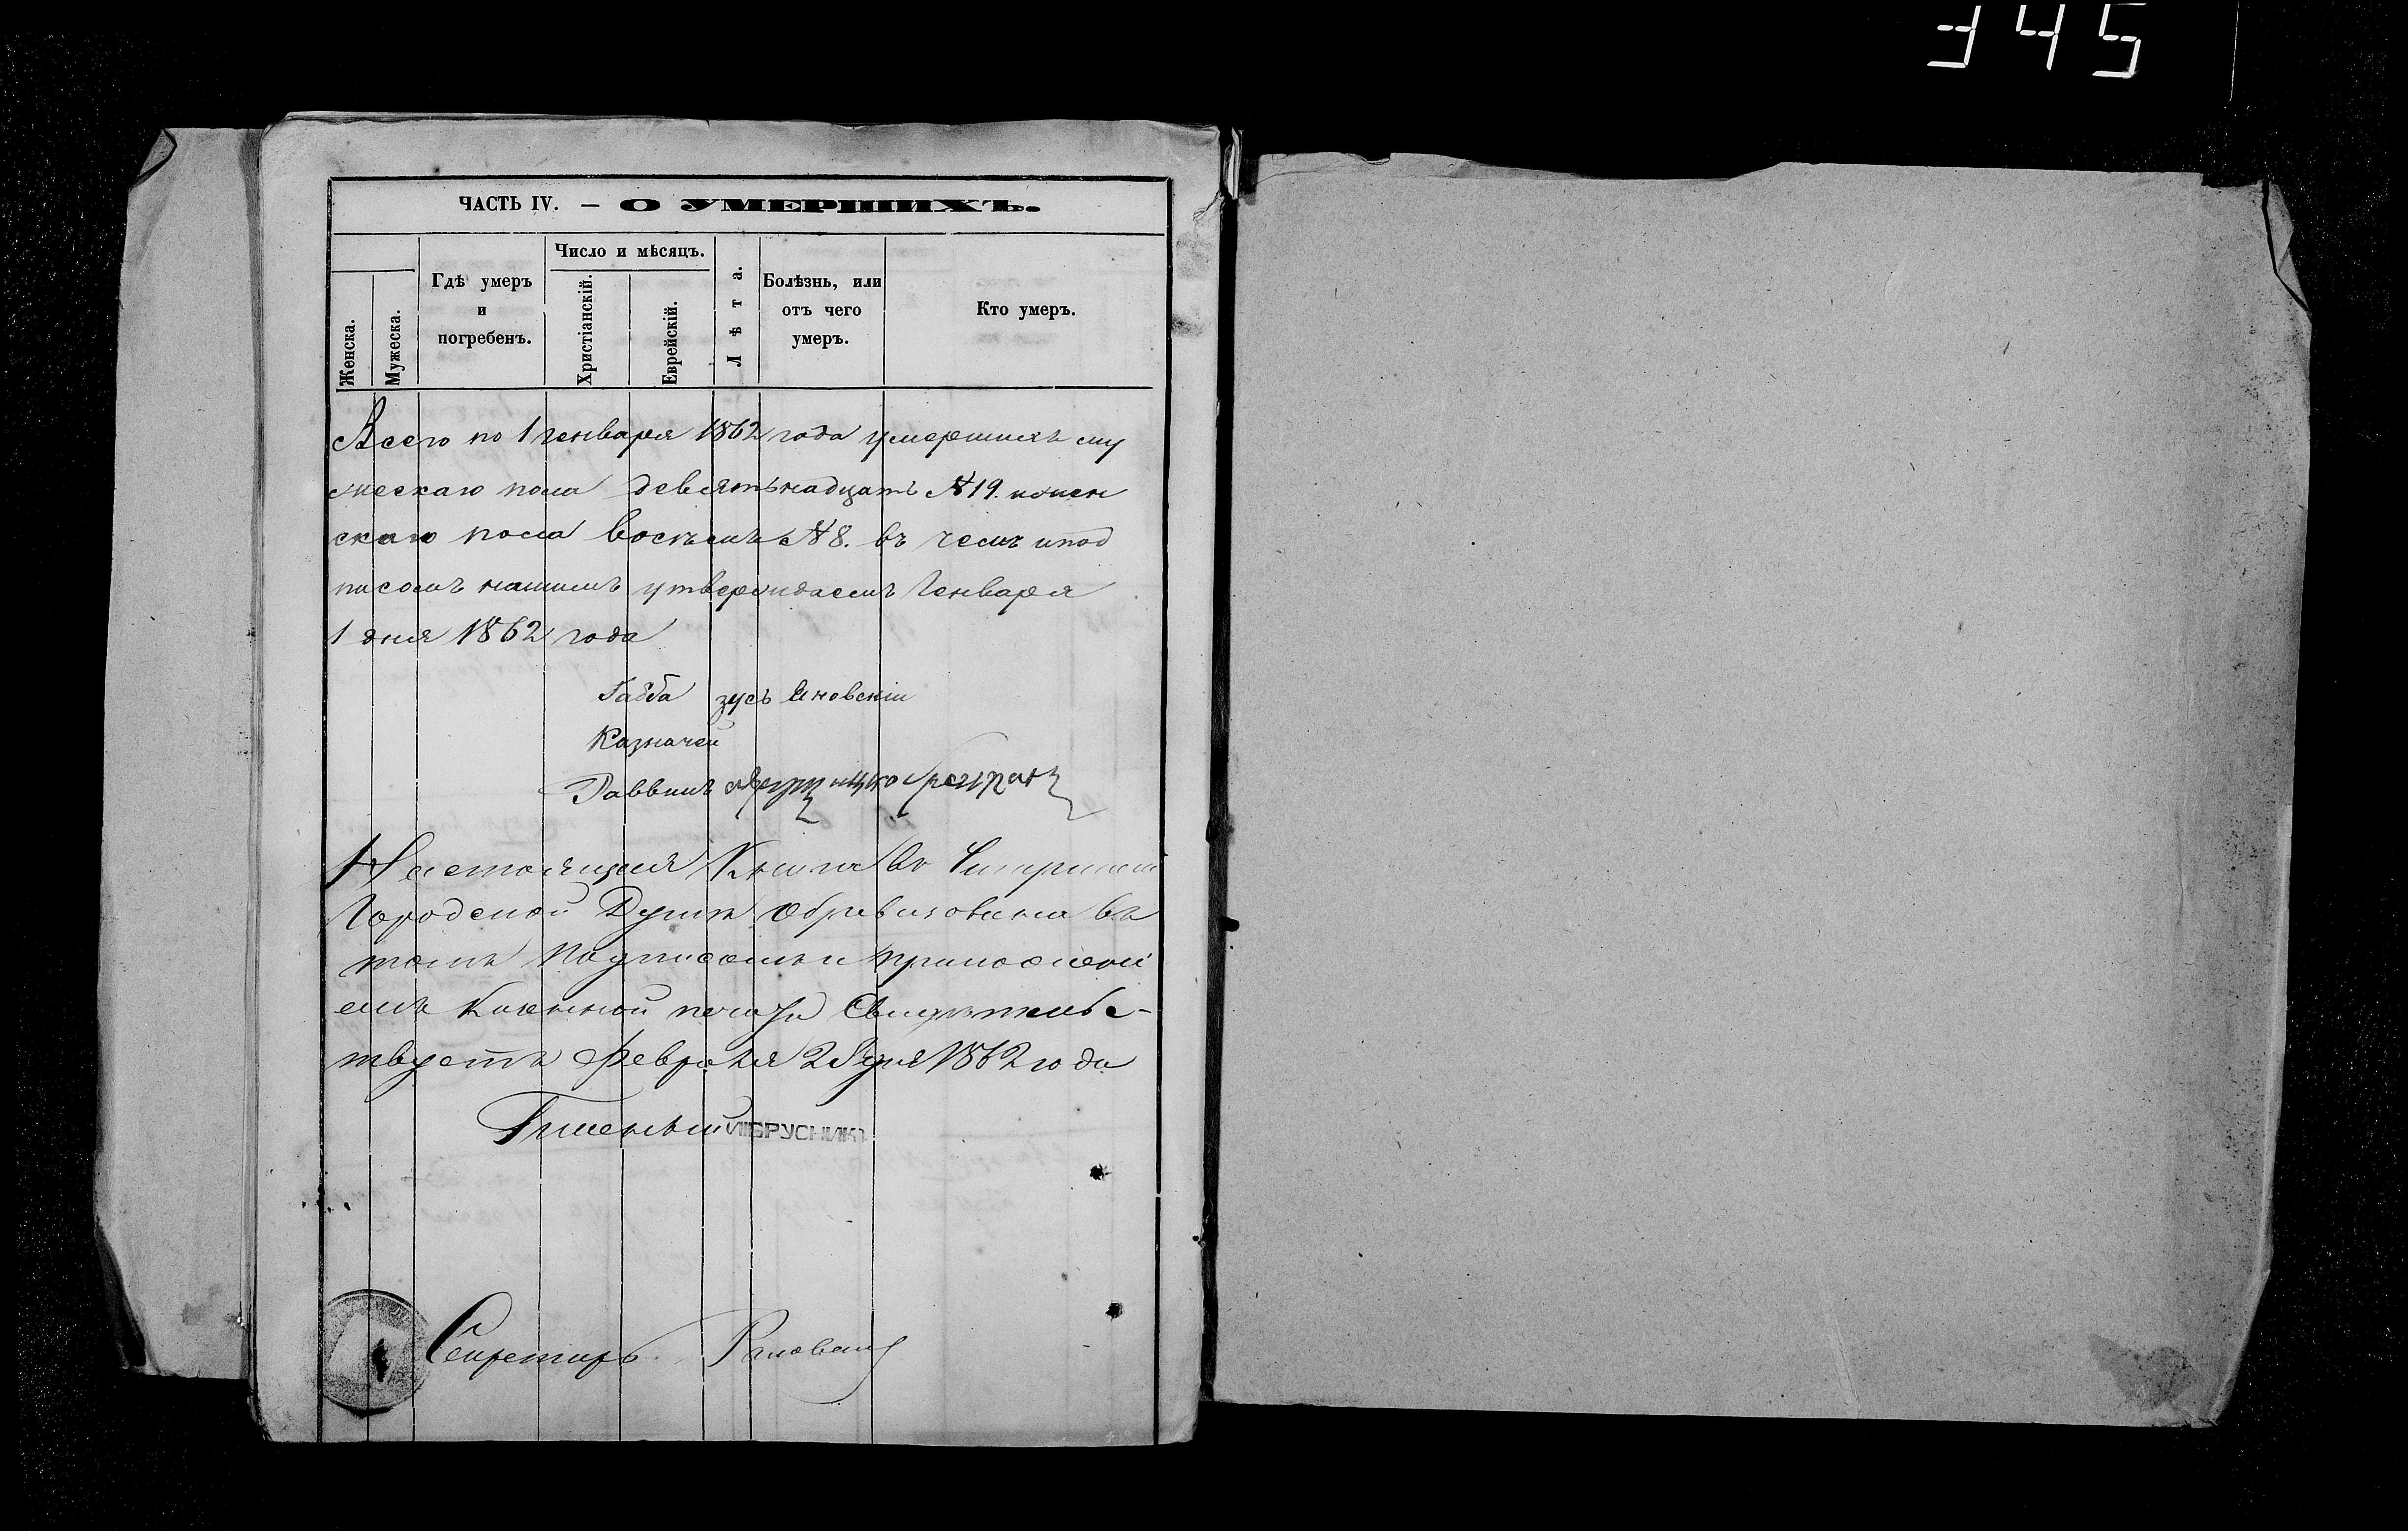 345
ЧАСТЬ IV. — О УМЕРШИХЪ.
Женска.
Мужеска.
Гдѣ умеръ
и
погребенъ.
Число и мѣсяцъ.
Христіанскій.
Еврейскій.
Лѣта.
Болѣзнь, или
отъ чего
умеръ.
Кто умеръ.
Всего по 1 генваря 1862 года умершихъ му
жескаго пола девятьнадцать №19. ижен
скаго пола восѣмъ №8. въ чемъ ипод
писомъ нашимъ утверждаемъ Генваря
1 дня 1862 года
Габба зусь Яновскіи
Казначей
Раввинъ
Настоящая Книга въ
Городской Думѣ Обревизована въ
томъ Подписомъ и приложені
емъ Казенной печати Свидѣтельс-
твуетъ Февраля 28 дня 1862 года
БРУСНИКЪ
Секретарь